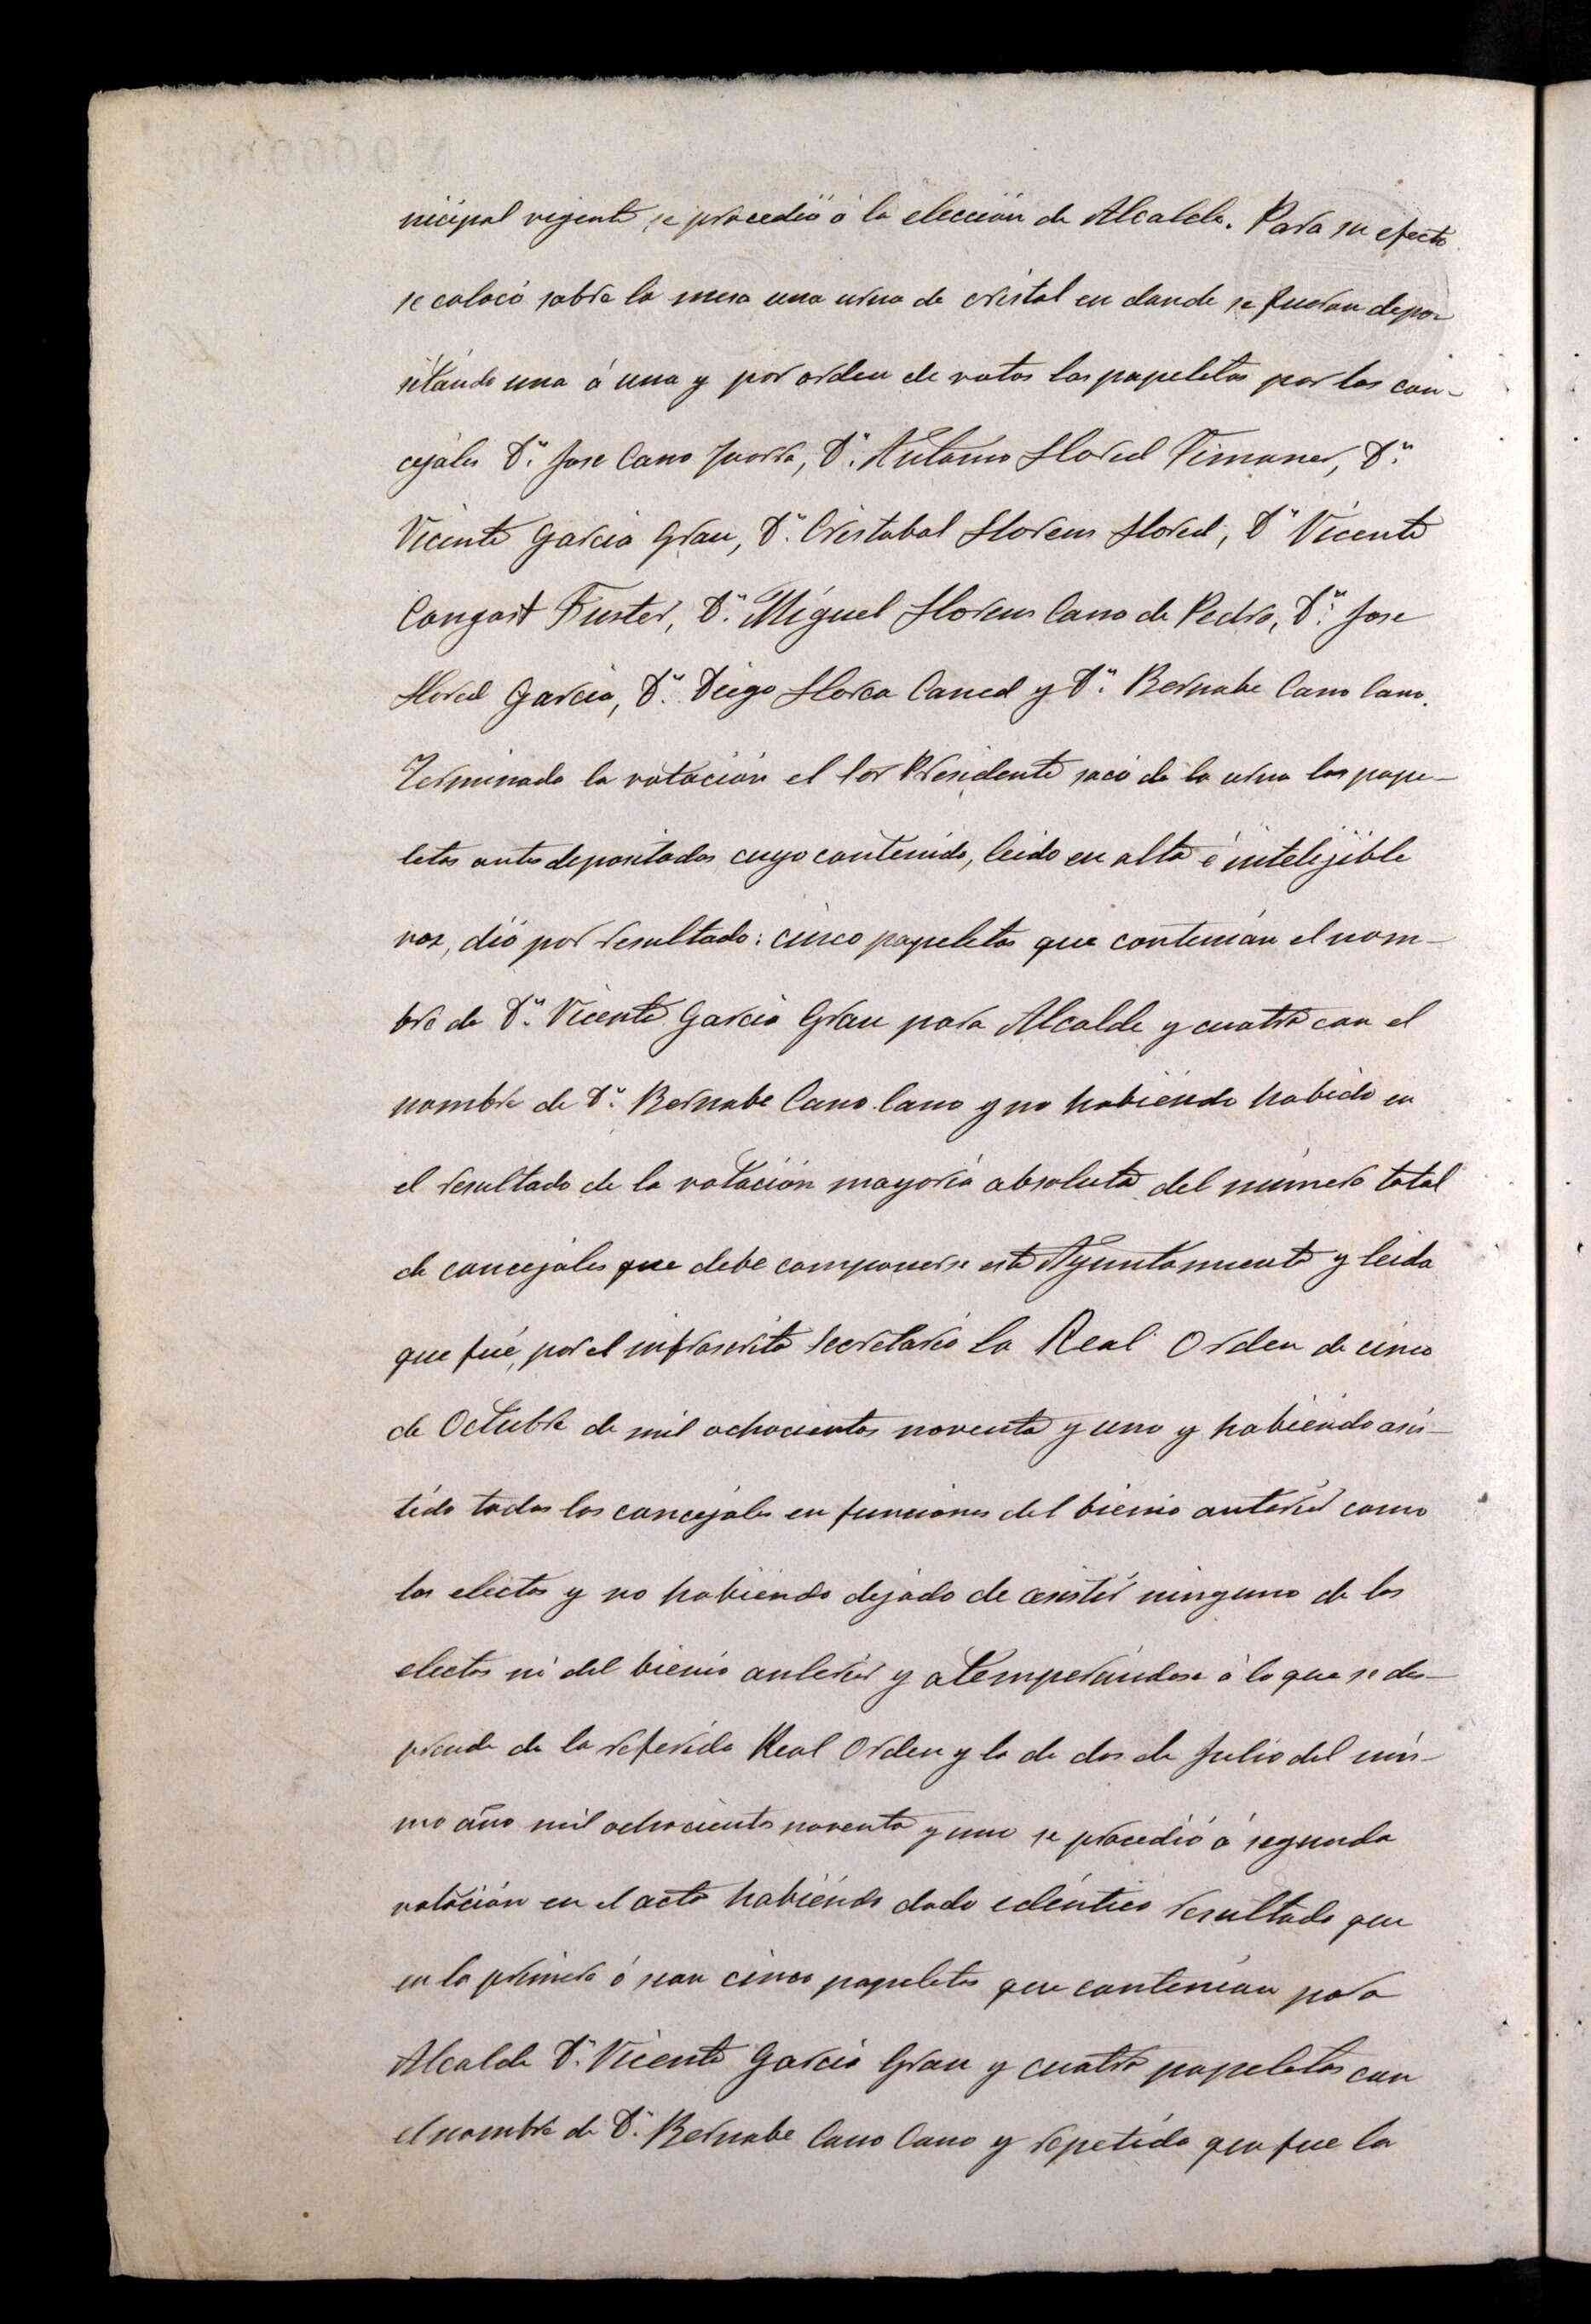 nicipal vigente se procedió á la elección de Alcalde. Para su efecto
se colocó sobre la mesa una urna de cristal en donde se fueron depo-
sitando una á una y por orden de votos las papeletas por los con-
cejales Dn. Jose Cano Juorra, Dn. Antonio Lloret Timoner, Dn.
Vicente Garcia Grau, Dn. Cristobal Llorens Lloret, Dn Vicente
Congost Fuster, Dn. Miguel Llorens Cano de Pedro, Dn. Jose
Lloret Garcia, Dn. Diego Llorca Caned y Dn. Bernabe Cano Cano.
Terminada la votación el Sor Presidente sacó de la urna las pape-
letas antes depositadas cuyo contenido, leido en alta é intelijible
voz, dió por resultado: cinco papeletas que contenian el nom-
bre de Dn. Vicente Garcia Grau para Alcalde y cuatro con el
nombre de Dn. Bernabe Cano Cano y no habiendo habido en
el resultado de la votación mayoria absoluta del número total
de concejales que debe componerse este Ayuntamiento y leida
que fué, por el infrascrito Secretario la Real Orden de cinco
de Octubre de mil ochocientos noventa y uno y habiendo asis-
tido todos los concejales en funciones del bienio anterior como
los electos y no habiendo dejado de asistir ninguno de los
electos ni del bienio anterior y atemperándose á lo que se des-
prende de la referida Real Orden y la de dos de Julio del mis-
mo año mil ochocientos noventa y uno se procedió á segunda
votación en el acto habiendo dado idéntico resultado que
en la primera ó sean cinco papeletas que contenian para
Alcalde Dn. Vicente Garcia Grau y cuatro papeletas con
el nombre de Dn. Bernabe Cano Cano y repetida que fue la